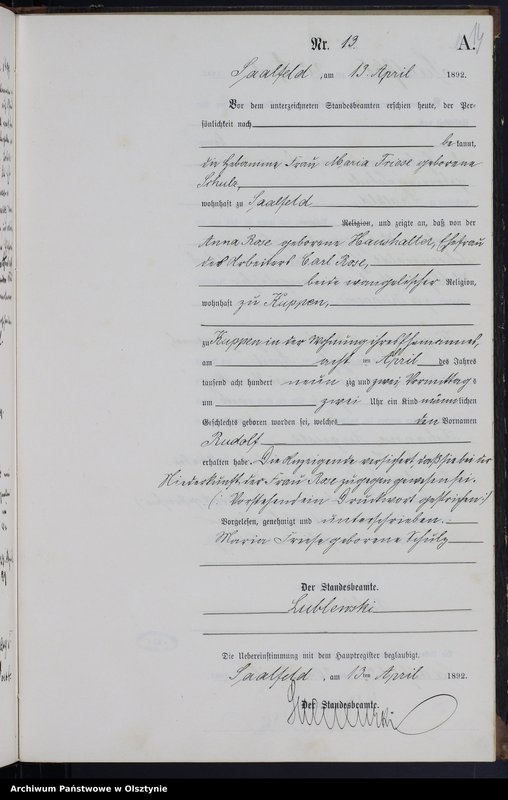 Nr. 13.
A. 14
Saalfeld, am 13. April 1892.
Vor dem unterzeichneten Standesbeamten erschien heute, der Per-
sönlichkeit nach
be kannt,
die Hebamme Frau Maria Friese geborene
Schulz,
wohnhaft zu Saalfeld
Religion, und zeigte an, daß von der
Anna Rose geborene Haushalter, Ehefrau
des Arbeiters Carl Rose,
beide evangelischer Religion,
wohnhaft zu Kuppen,
zu Kuppen in der Wohnung ihres Ehemannes,
am acht ten April des Jahres
tausend acht hundert neun zig und zwei Vormittags
um zwei Uhr ein Kind männlichen
Geschlechts geboren worden sei, welches den Vornamen
Rudolf
erhalten habe. Die Anzeigende versichert, daß sie bei der
Niederkunft der Frau Rose zugegen gewesen sei.
(: Vorstehend ein Druckwort gestrichen :)
Vorgelesen, genehmigt und unterschrieben.
Maria Friese geborene Schulz
Der Standesbeamte.
Lublewski
Die Uebereinstimmung mit dem Hauptregister beglaubigt.
Saalfeld, am 13ten April 1892.
Der Standesbeamte.
Archiwum Państwowe w Olsztynie